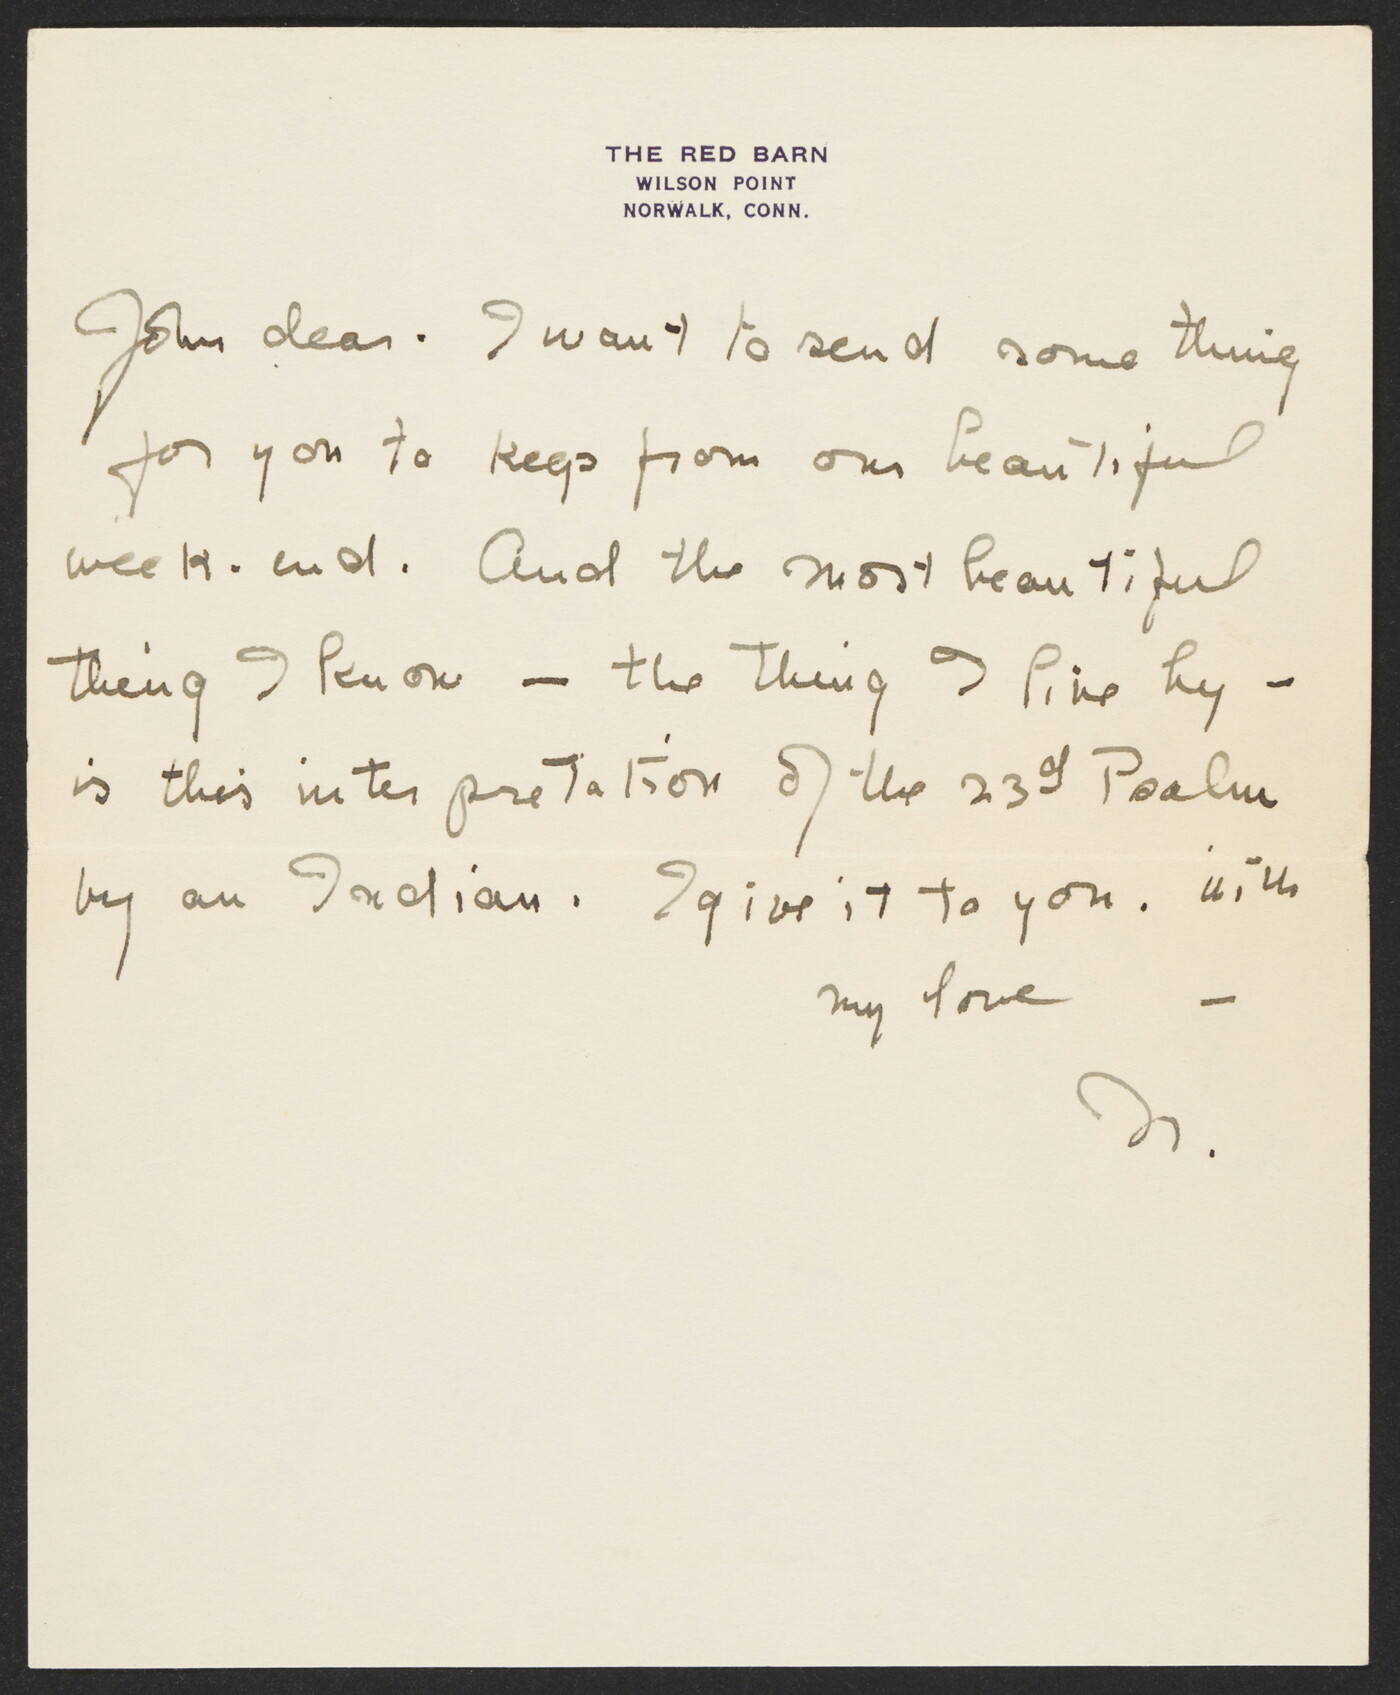 THE RED BARN
WILSON POINT
NORWALK, CONN.
John dear. I want to send something
for you to keep from our beautiful
week-end. And the most beautiful
thing I know — the thing I live by -
is this interpretation of the 23d Psalm
by an Indian. I give it to you. with
my love —